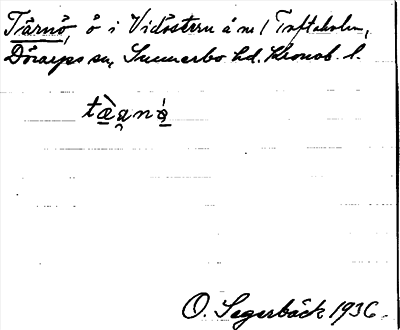 Tärnö, ö i Vidöstern å nr 1 Toftaholm,
Dörarps sn, Sunnerbo hd. Kronob. l.
O. Sagerbäck 1936.